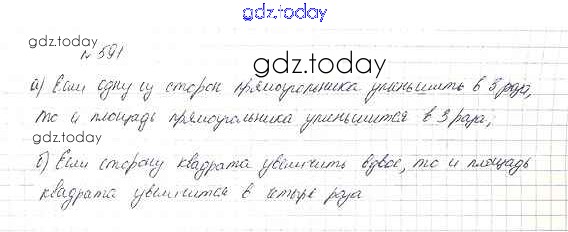 gdz.today
gdz.today
№ 591
gdz.today
а) Если одну из сторон прямоугольника уменьшить в 3 раза,
то и площадь прямоугольника уменьшится в 3 раза;
gdz.today
б) Если сторону квадрата увеличить вдвое, то и площадь
квадрата увеличится в четыре раза